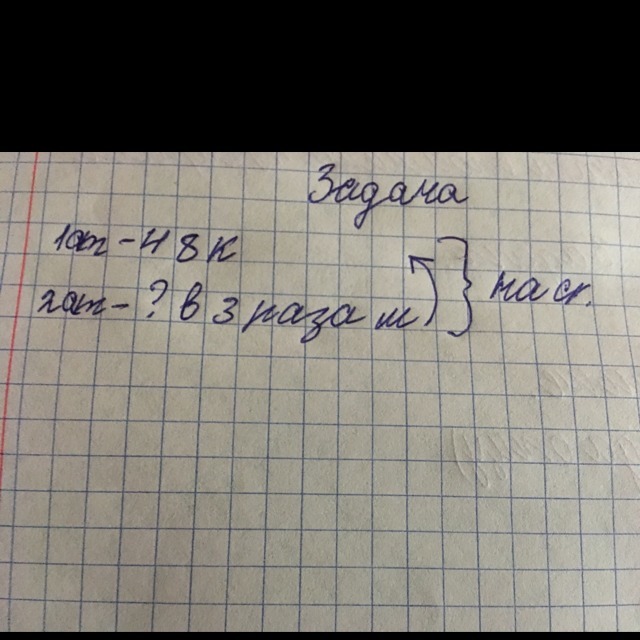 Задача
1ст - 48 к
2ст - ? в 3 раза м
на ск.